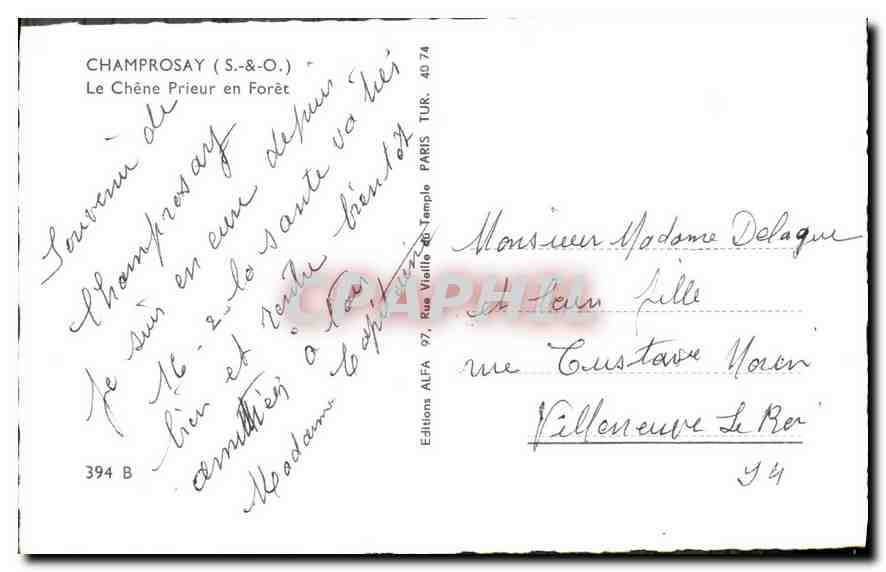 CHAMPROSAY (S.-&-O.)
Le Chêne Prieur en Forêt
Souvenir de
Champrosay
Je suis en cure depuis
16-2- la santé va très
bien et rentre bientôt
amitiés à tous
Madame Capitaine
394 B
Editions ALFA 97, Rue Vieille du Temple PARIS TUR. 40 74
CPAPHIL
Monsieur Madame Delague
et leur fille
rue Gustave
Villeneuve Le Roi
94